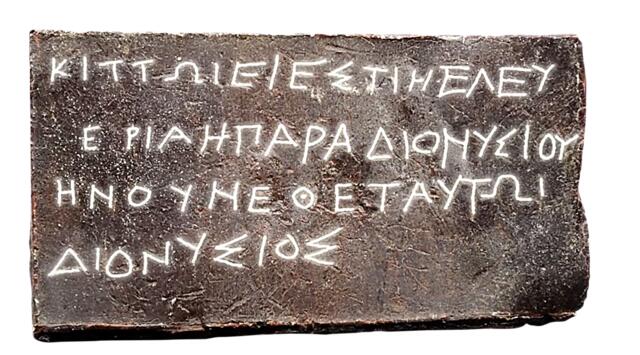 ΚΙΤΤΩΙΕΙΕΣΤΙΗΕΛΕΥ
ΕΡΙΑΗΠΑΡΑΔΙΟΝΥΣΙΟΥ
ΗΝΟΥΝΕΘΕΤΑΥΤΩΙ
ΔΙΟΝΥΣΙΟΣ